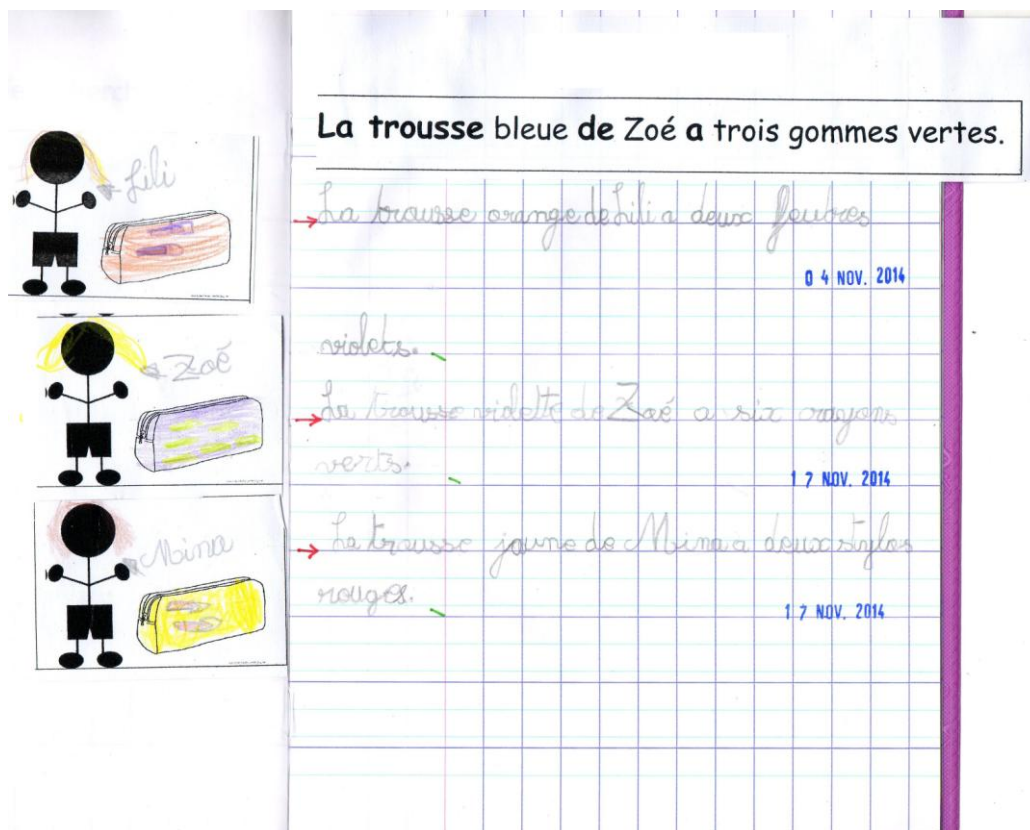 La trousse bleue de Zoé a trois gommes vertes.
Lili
La trousse orange de Lili a deux feutres
0 4 NOV. 2014
violets.
Zoé
La trousse violette de Zoé a six crayons
verts.
1 7 NOV. 2014
Mina
La trousse jaune de Mina a deux stylos
rouges.
1 7 NOV. 2014